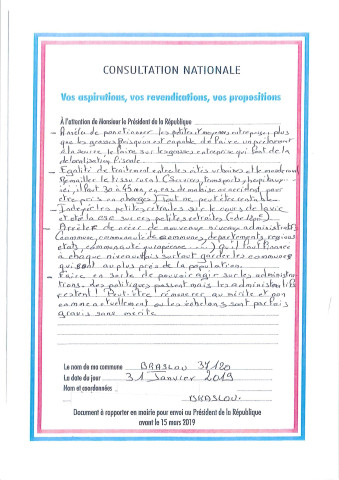 CONSULTATION NATIONALE
Vos aspirations, vos revendications, vos propositions
À l'attention de Monsieur le Président de la République
- Arrêter de ponctionner les petites et moyennes entreprises, plus
que les grosses Puisqu'on est capable de faire un prélèvement
à la source, le faire sur les grosses entreprises qui font de la
délocalisation fiscale.
- Egalité de traitement entre les cités urbaines et le monde rural
Remailler le tissu rural (Services, transports, hopitaux:
ici, il faut 30 à 45 mn, en cas de malaise ou accident, pour
être pris en charge) Tout ne peut être rentable.
- Indexer les petites retraites sur le cours de la vie
et oté la CSG sur ces petites retraites
- Arrêter de créer de nouveaux niveaux administratifs
(commune, communauté de communes, départements, régions
états, communauté européenne ....) qu'il faut financer
à chaque niveau. Mais surtout garder les communes
qui sont au plus près de la population.
- Faire en sorte de pouvoir agir sur les administra-
tions. des politiques passent mais les administratifs
restent! Peut-être rémunérer au mérite et non
comme actuellement ou les échelons sont parfois
gravis sans mérite
Le nom de ma commune BRASLOU 37120
La date du jour 31 Janvier 2019
Nom et coordonnées
BRASLOU.
Document à rapporter en mairie pour envoi au Président de la République
avant le 15 mars 2019